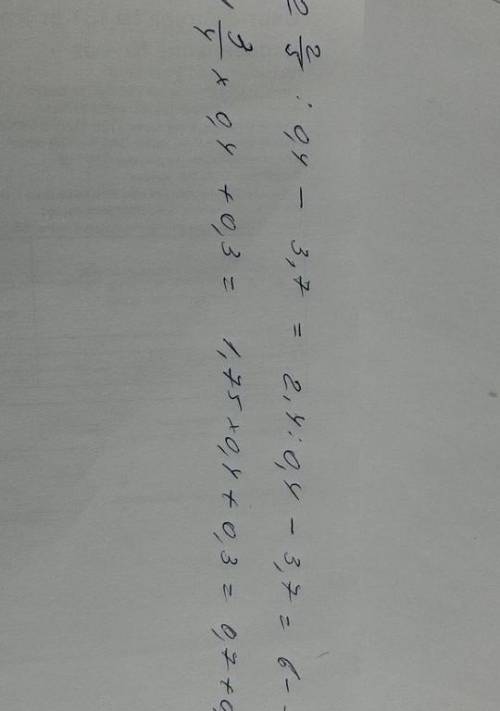 2 2/5 : 0,4 - 3,7 = 2,4 : 0,4 - 3,7 = 6 -
3/4 × 0,4 + 0,3 = 1,75 × 0,4 + 0,3 = 0,7 + 0,